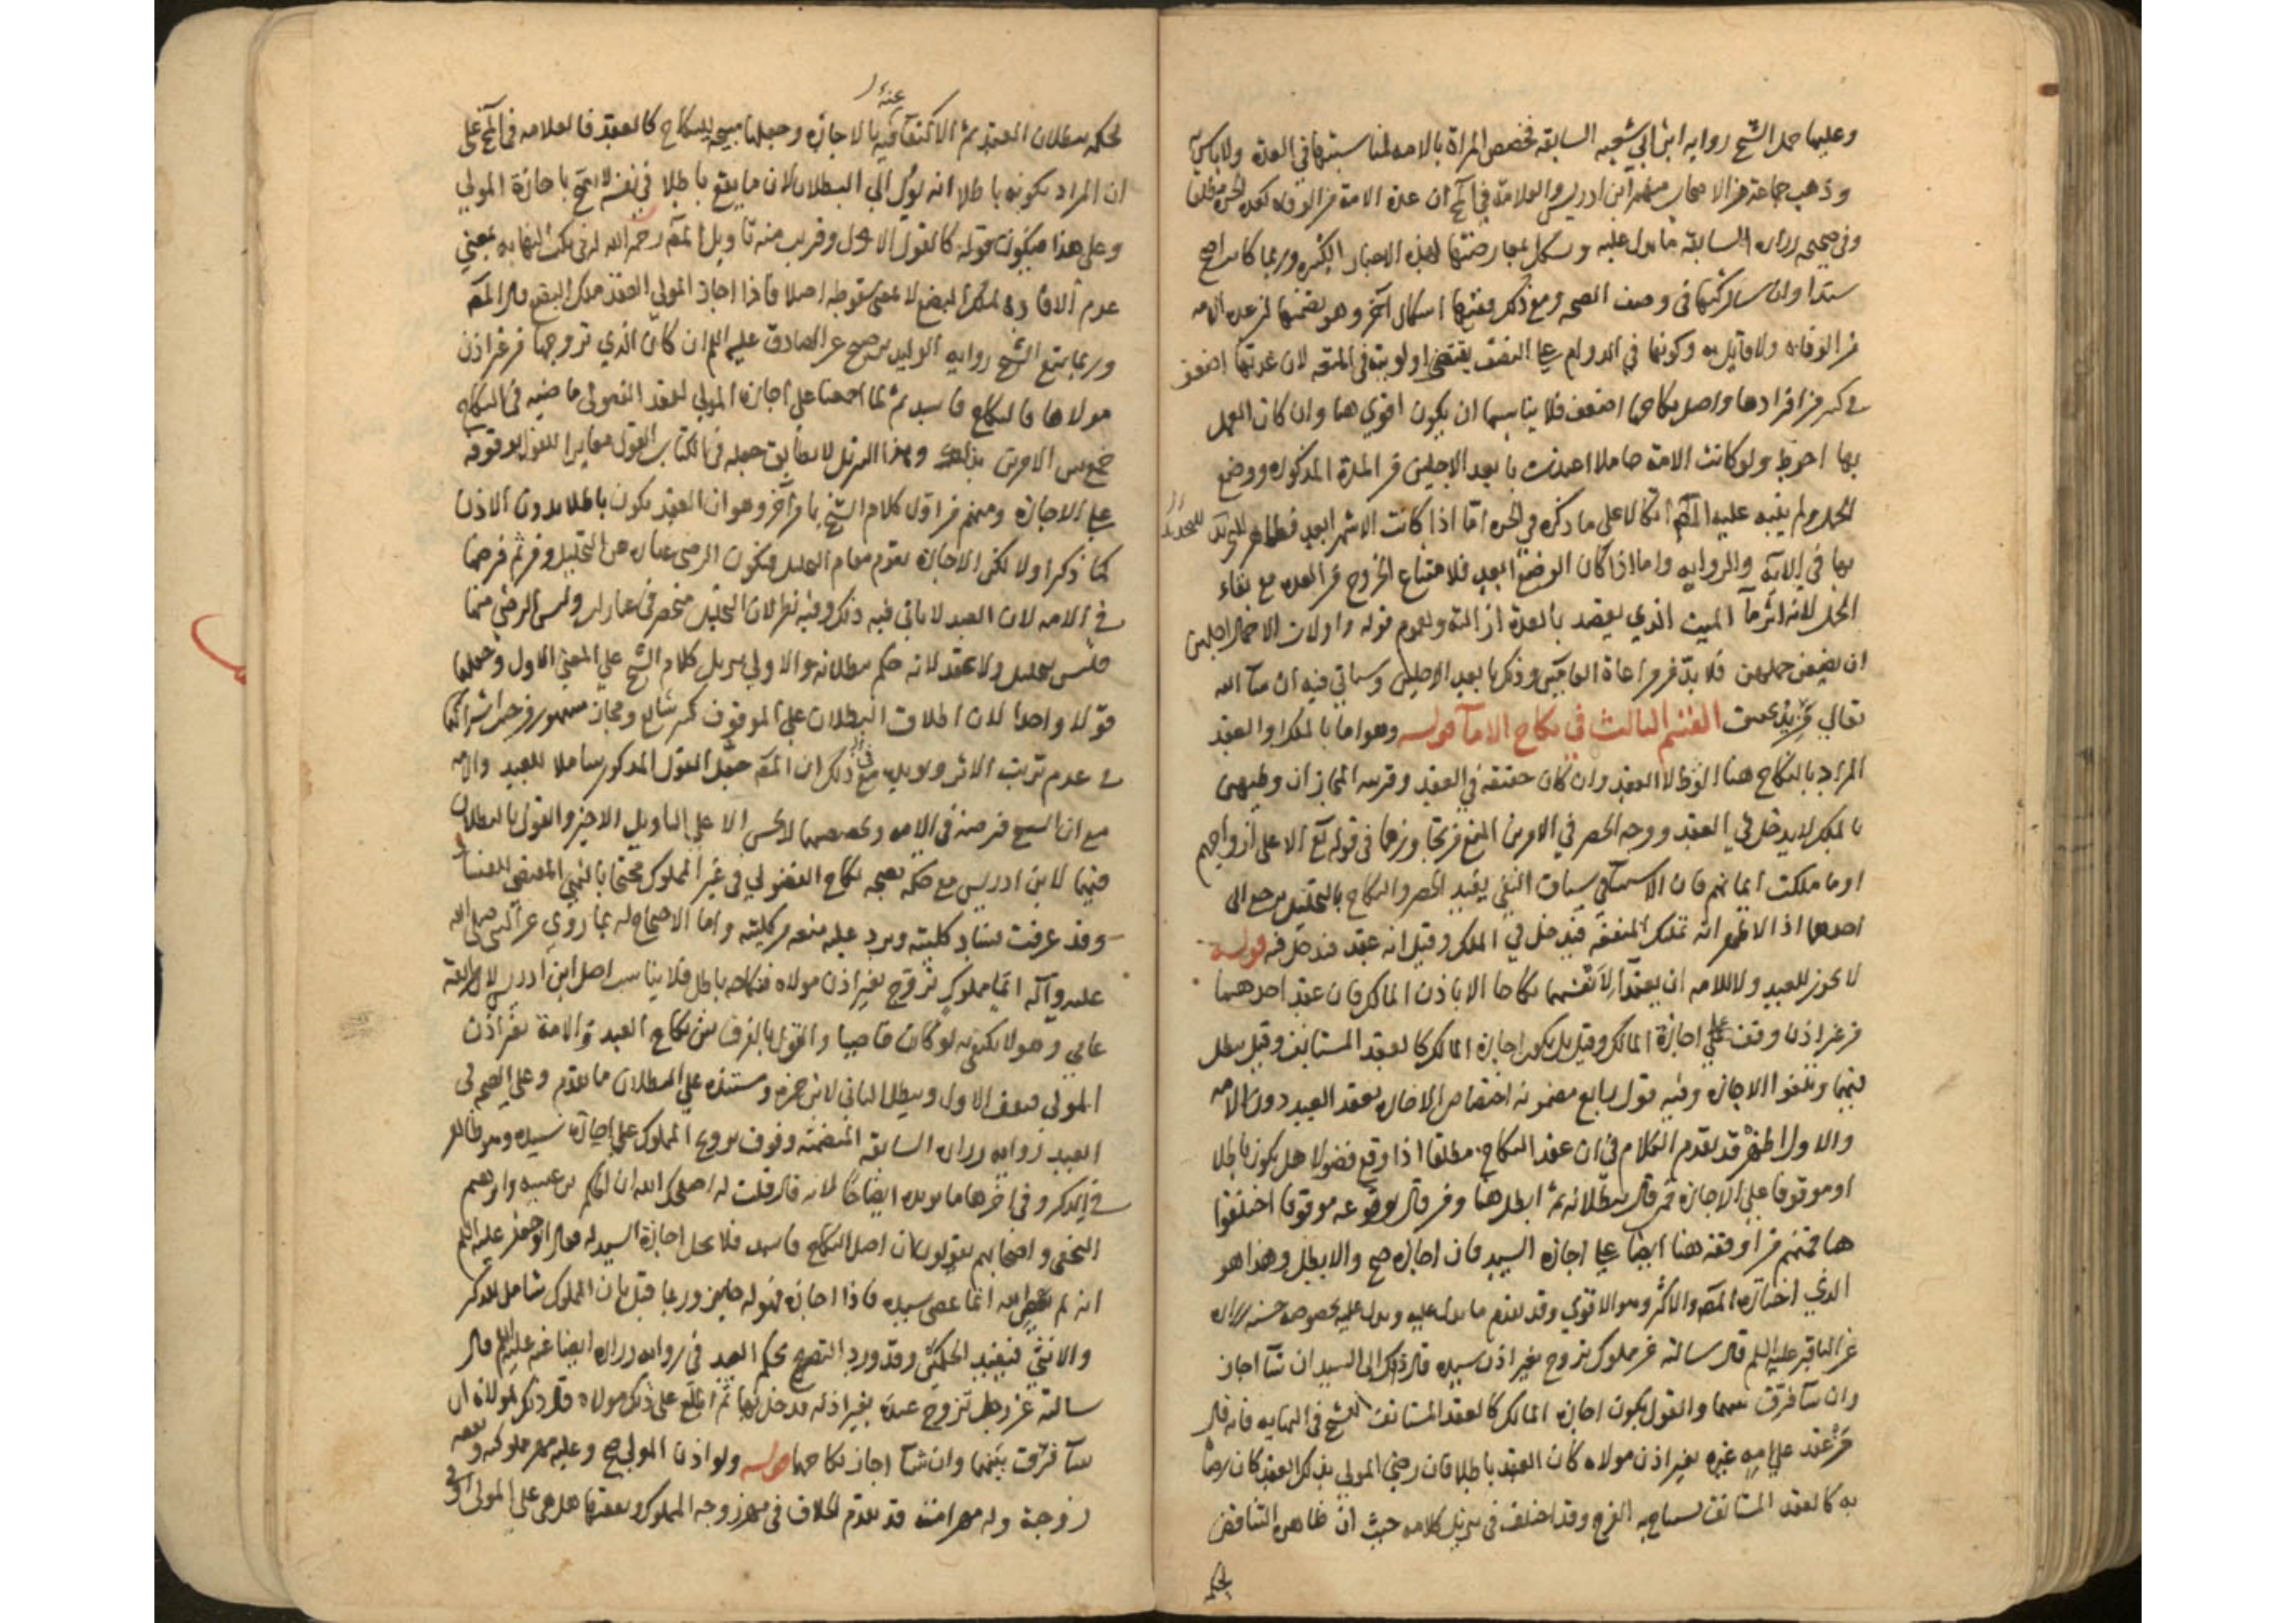 وعليها حمل الشيخ رواية ابن ابي شعبه السابقه فخصص المراة بالامه لمناسبتها في العدة ولا باس به
وذهب جماعة من الاصحاب منهم ابن ادريس والعلامة في لح ان عدة الامة من الوفاه كعدة الحره مطلقا
وفي صحيحه زراره السابقه ما يدل عليه ويشكل بمعارضتها لهذه الاخبار الكثيره وربما كانت ارجح
سندا وان شاركتها في وصف الصحه ومع ذلك ففيها اشكال آخر وهو تضمنها ان عدة الامه
من الوفاه ولا قايل به وكونها في الدوام على النصف يقتضي اولويته في المتعه لان عدتها اضعف
في كثير من افرادها واصل نكاحها اضعف فلا يناسبها ان يكون اقوي هنا وان كان العمل
بها احوط ولو كانت الامة حاملا اعتدت بابعد الاجلين من المدة المذكوره ووضع
الحمل ولم ينبه عليه المص اتكالا على ما ذكره في الحره امّا اذا كانت الاشهر ابعد فظاهر للتحديد
بها في الآية والروايه واما اذا كان الوضع ابعد فلامتناع الخروج من العده مع بقاء
الحمل لانه اثر ماء الميت الذي يقصد بالعدة ازالته ولعموم قوله واولات الاحمال اجلهن
ان يضعن حملهن فلا بدّ من مراعاة الجانبين وذكرنا بعد الاجلين وسياتي فيه ان شآ الله
تعالي مزيد بحث القسم الثالث في نكاح الامآ قوله وهو اما بالملك او العقد
المراد بالنكاح هنا الوطؤ لا العقد وان كان حقيقة في العقد وقرينة المجاز ان وطيهن
بالملك لا يدخل في العقد ووجه الحصر في الامرين المنع من تجاوزهما في قوله تع الا على ازواجهم
او ما ملكت ايمانهم فان الاستثناء في سياق النفي يفيد الحصر والنكاح بالتحليل يرجع الى
احدهما اذ الاظهر انه تمليك المنفعة فيدخل في الملك وقيل انه عقد فيدخل فيه قوله
لا يجوز للعبد ولا للامه ان يعقدا لانفسهما نكاحا الا باذن المالك فان عقد احدهما
من غير اذن وقف على اجازة المالك وقيل بل يكون اجازة المالك كالعقد المستانف وقيل يبطل
فيهما وتلغوا الاجازه وفيه قول رابع مضمونه اختصاص الاجازه بعقد العبد دون الامه
والاول اظهر قد تقدم الكلام في ان عقد النكاح مطلقا اذا وقع فضولا هل يكون باطلا
او موقوفا على الاجازه فمن قال ببطلانه ثم ابطل هنا ومن قال بوقوعه موقوفا اختلفوا
هنا فمنهم من اوقفه هنا ايضا على اجازه السيد فان اجازه صح والا بطل وهذا هو
الذي اختاره المص والاكثر وهو الاقوي وقد تقدم ما يدل عليه ويدل عليه بخصوصه حسنه زراره
عن الباقر عليه السلم قال سالته عن مملوك تزوج بغير اذن سيده قال ذلك الى السيد ان شآ اجاز
وان شآ فرّق بينهما والقول بكون اجازه المالك كالعقد المستانف للشيخ في النهايه فانه قال
من عقد على امه غيره بغير اذن مولاه كان العقد باطلا فان رضي المولي بذلك العقد كان رضاه
به كالعقد المستانف يستباح به الفرج وقد اختلف في تنزيل كلامه حيث ان ظاهره التناقض
لحكمه
عنه
لحكمه ببطلان العقد ثم الاكتفآ فيه بالاجازه وجعلها مبيحه للنكاح كالعقد فالعلامه في لح على
ان المراد بكونه باطلا انه يؤل الي البطلان لان ما يقع باطلا في نفسه لا يصح باجازة المولي
وعلى هذا فيكون قوله كالقول الاول وقريب منه تاويل المص رحمه الله له في نكت النهايه بمعني
عدم الافاده لملك البضع لا بمعنى سقوطه اصلا فاذا اجاز المولي العقد ملك البضع قال المص
وربما يتبع الشيخ رواية الوليد بن صبيح عن الصادق عليه السلم ان كان الذي تزوجها من غير اذن
مولاها فالنكاح فاسد ثم لما اجمعنا على اجازه المولي لعقد الفضولي ماضيه في النكاح
جمع بين الامرين بذلك وبهذا التنزيل لا يطابق جعله في الكتاب القول مغايرا للقول بوقوفه
على الاجازه ومنهم من اوّل كلام الشيخ بامر آخر وهو ان العقد يكون باطلا بدون الاذن
كما ذكرا ولا لكن الاجازه تقوم مقام التحليل فيكون الرضى عباره عن التحليل ومن ثم فرضها
في الامه لان العبد لا ياتي فيه ذلك وفيه نظر لان التحليل منحصر في عبارات وليس الرضي منها
فليس بتحليل ولا عقد لانه حكم ببطلانه والاولي تنزيل كلام الشيخ على المعني الاول وجعلهما
قولا واحدا لان اطلاق البطلان على الموقوف كثير شايع ومجاز مشهور من حيث اشتراكهما
في عدم ترتب الاثر ويؤيده في ذلك ان المص جعل القول المذكور شاملا للعبد والامه
مع ان الشيخ فرضه في الامه وتخصيصها لا يحسن الا على التاويل الاخير والقول بالبطلان
فيهما لابن ادريس مع حكمه بصحه نكاح الفضولي في غير المملوك محتجا بالنهي المقتضي للفساد
وقد عرفت فساد كليته ويرد عليه منعه من كليته واما الاحتجاج له بما روي عن النبي صلى الله
عليه وآله ايّما مملوك تزوج بغير اذن مولاه فنكاحه باطل فلا يناسب اصل ابن ادريس لان الرواية
عامي وهو لا يكتفي به لو كان خاصيا والقول بالفرق بين نكاح العبد والامة بغير اذن
المولي فيقف الاول ويبطل الثاني لابن حمزه ومستنده على البطلان ما تقدم وعلى الصحه في
العبد روايه زراره السابقه المتضمنه وقوف تزويج المملوك على اجازه سيده وهو ظاهر
في الذكر وفي آخرها ما يؤيده ايضاحا لانه قال قلت له اصلحك الله ان الحكم بن عيينه وابرهيم
النخعي واصحابهم يقولون ان اصل النكاح فاسد فلا يحل اجازة السيد له فقال ابو جعفر عليه السلم
انه لم يعص الله انما عصى سيده فاذا اجازه فهو له جايز وربما قيل بان المملوك شامل للذكر
والانثي فيفيد الحكمين وقد ورد التصريح بحكم العبد في روايه زراره ايضا عنه عليه السلم قال
سالته عن رجل تزوج عبده بغير اذنه فدخل بها ثم اطلع على ذلك مولاه قال ذلك لمولاه ان
شآ فرّق بينهما وان شآ اجاز نكاحهما قوله ولو اذن المولي صح وعليه مهر مملوكه ونفقه
زوجة وله مهر امته قد تقدم الخلاف في مهر زوجه المملوك ونفقتها هل هي على المولي او في